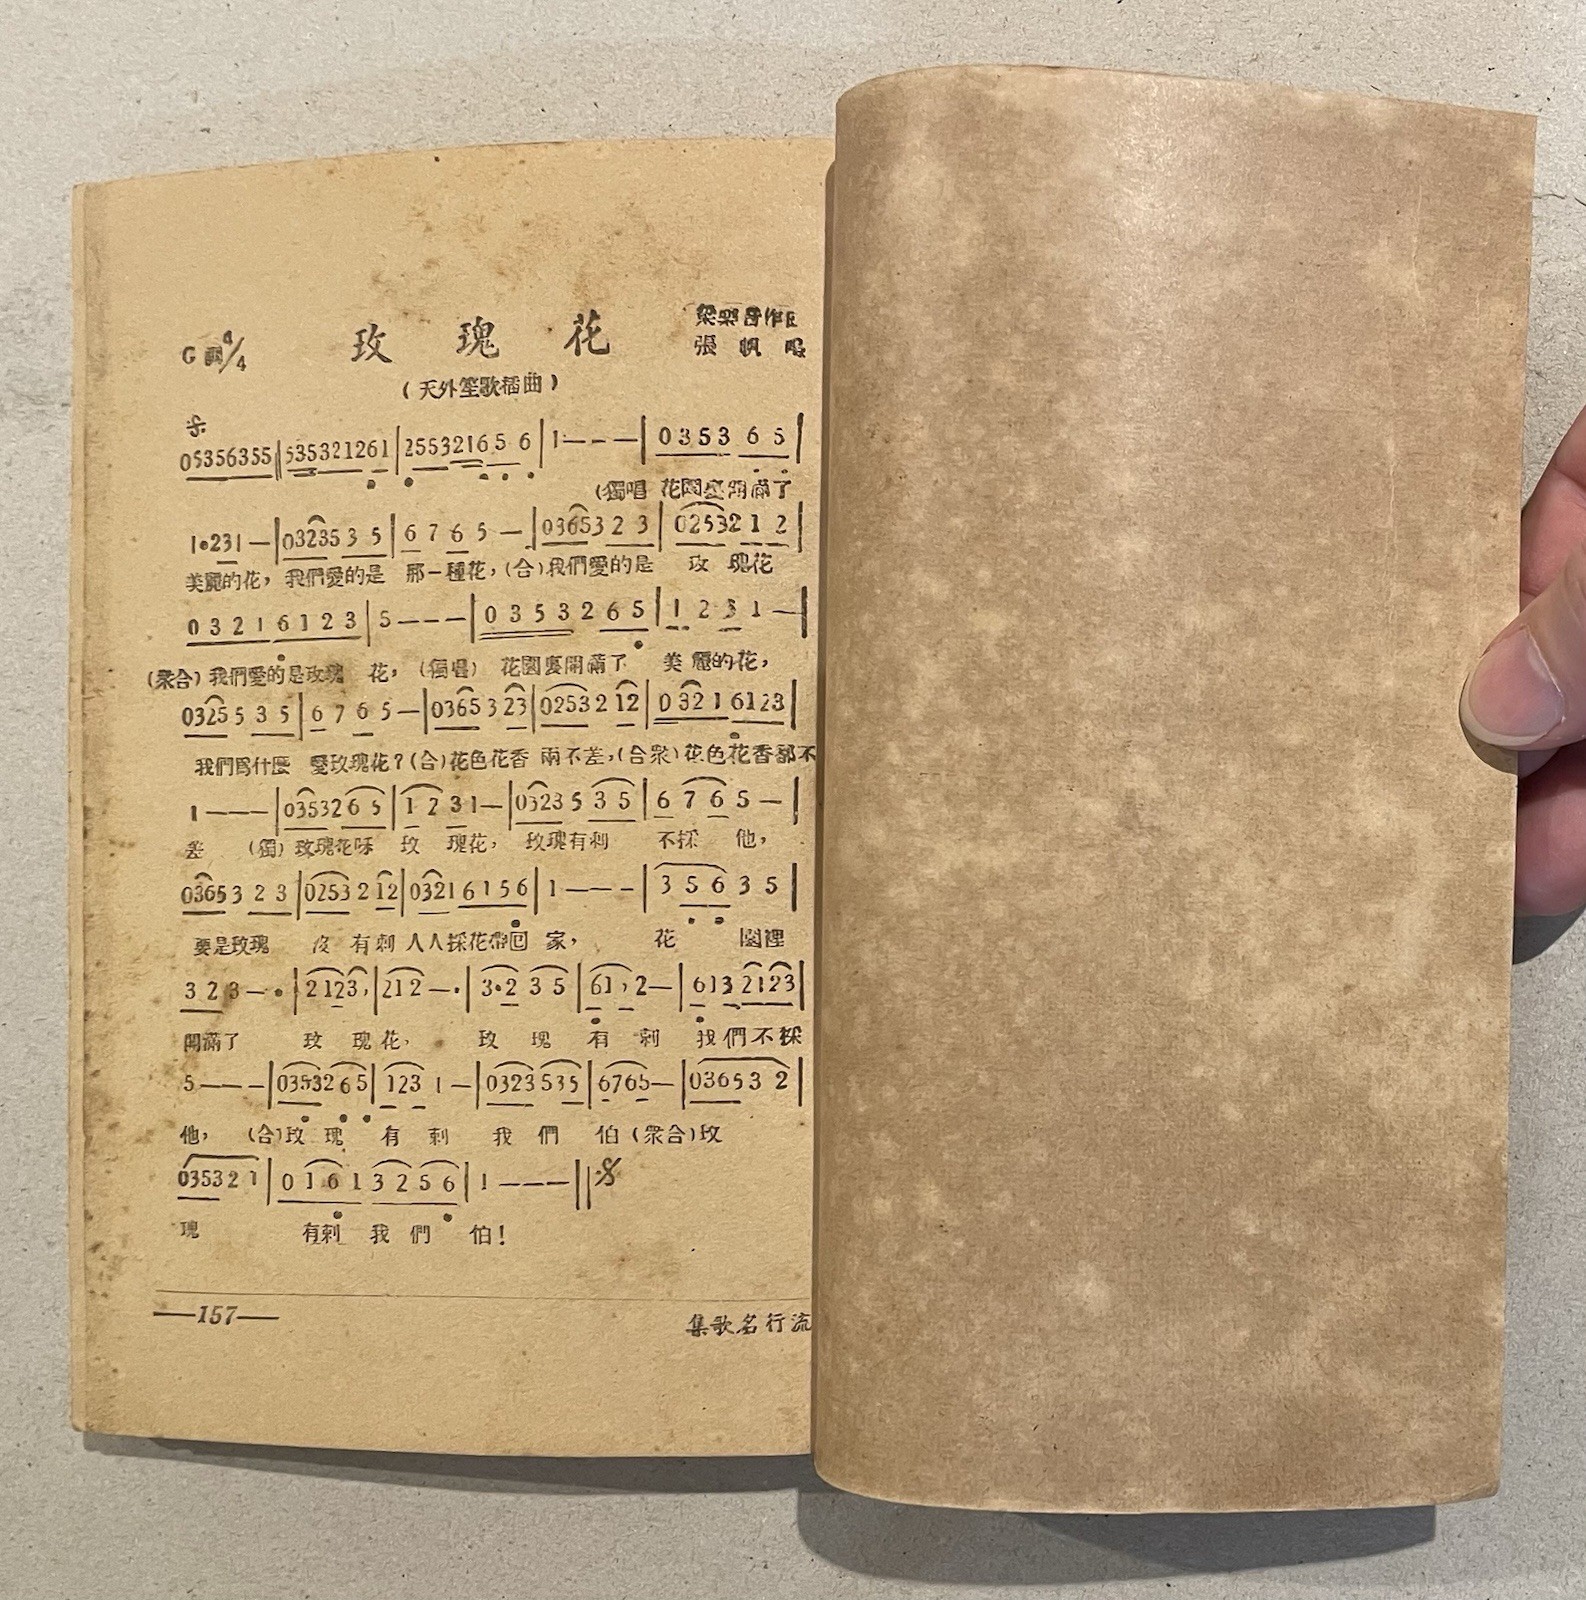 G調4/4
玫瑰花
梁樂音作曲
張帆唱
(天外笙歌插曲)
05356355‖535321261|255321656|1———|035365|
(獨唱 花園裏開滿了
1•231—|03235 3 5|6 7 6 5—|036532 3|025321 2|
美麗的花，我們愛的是 那一種花，(合)我們愛的是 玫瑰花
0 3 2 1 6 1 2 3|5———|0 3 5 3 2 6 5|1 2 3 1—|
(衆合)我們愛的是玫瑰 花，(獨唱) 花園裏開滿了 美麗的花，
0325 5 3 5|6 7 6 5—|0365 3 23|0253 2 12|0 321 6123|
我們爲什麼 愛玫瑰花?(合)花色花香 兩不差，(合衆)花色花香都不
1———|0353265|1 2 3 1—|0323 5 3 5|6 7 6 5—|
差 (獨)玫瑰花呀 玫 瑰花， 玫瑰有刺 不採 他，
0365 3 2 3|0253 2 12|0321 6156|1———|3 5 6 3 5|
要是玫瑰 沒 有刺 人人採花帶回 家， 花 園裡
3 2 3—•|2123,|212—•|3•2 3 5|61,2—|6132123|
開滿了 玫 瑰花， 玫 瑰 有 刺 我們不採
5———|0353265|123 1—|0323535|6765—|03653 2|
他， (合)玫 瑰 有 刺 我 們 怕 (衆合)玫
035321|0 1 6 1 3 2 5 6|1———‖
瑰 有刺 我 們 怕!
—157—
集歌名行流